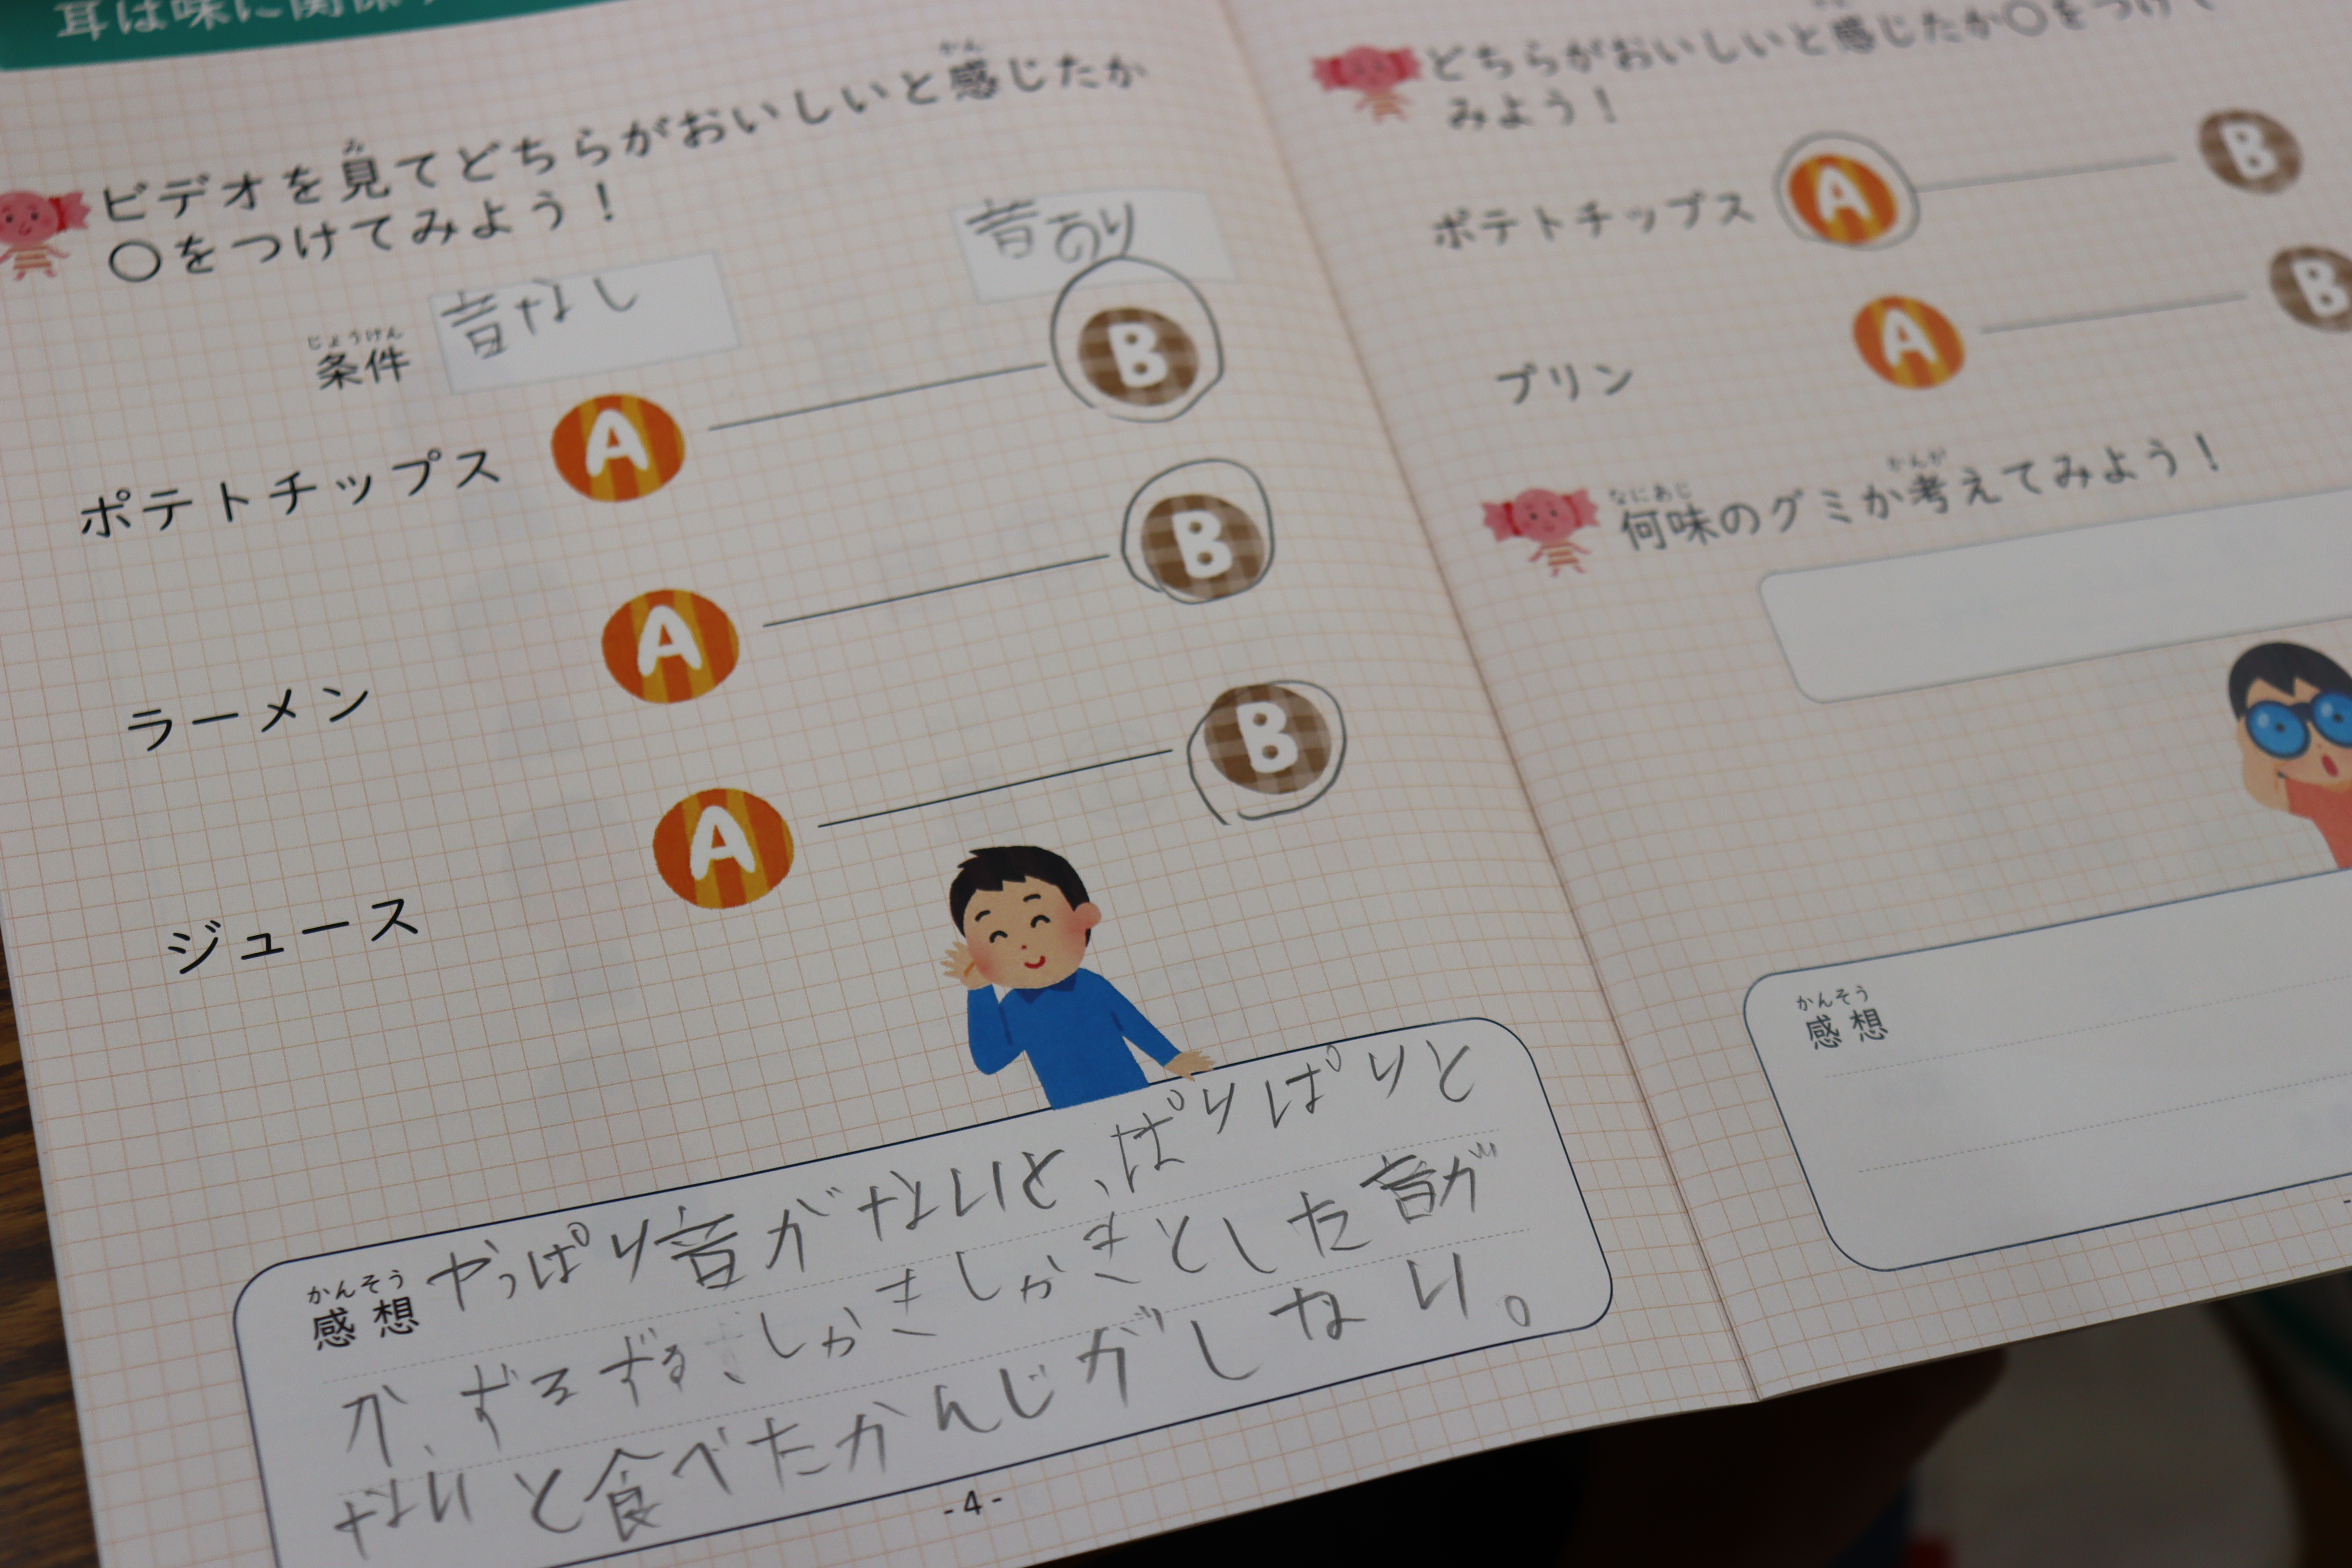 耳は味に関係
ビデオを見てどちらがおいしいと感じたか
○をつけてみよう！
条件 音なし 音あり
ポテトチップス A B
ラーメン A B
ジュース A B
感想 やっぱり音がないと、ぱりぱりと
か、ずるずるしゃきしゃきとした音が
ないと食べたかんじがしない。
-4-
どちらがおいしいと感じたか○をつけて
みよう！
ポテトチップス A B
プリン A B
何味のグミか考えてみよう！
感想